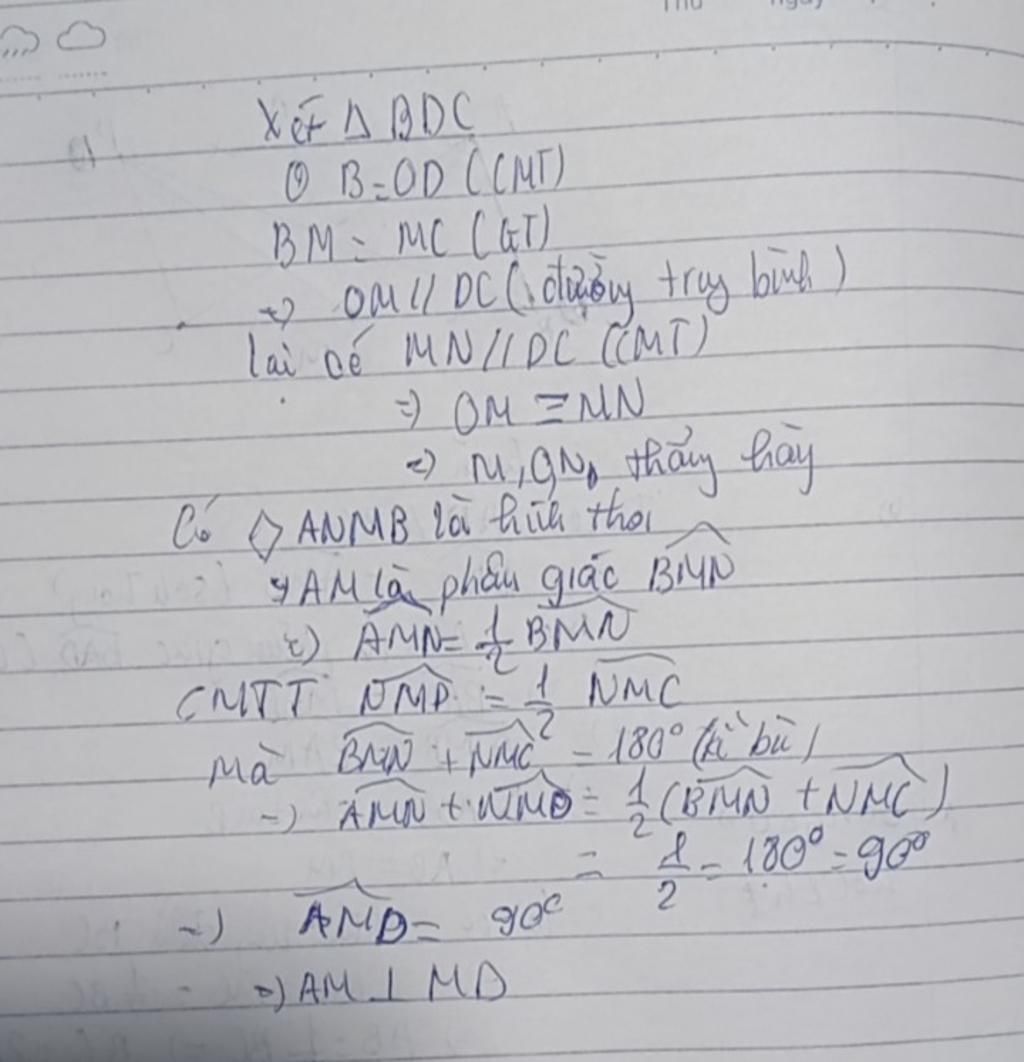 Thứ ngày
Xét Δ BDC
OB=OD (CMT)
BM = MC (GT)
=> OM // DC (đường trug bình)
lại có MN//DC (CMT)
=> OM ≡ MN
=> M, O, N, thẳng hàng
Có ◇ ANMB là hình thoi
=> AM là phân giác \widehat{BMN}
=> \widehat{AMN} = \frac{1}{2} \widehat{BMN}
CMTT \widehat{NMD} = \frac{1}{2} \widehat{NMC}
Mà \widehat{BMN} + \widehat{NMC} = 180° (kề bù)
=> \widehat{AMN} + \widehat{NMD} = \frac{1}{2} (\widehat{BMN} + \widehat{NMC})
= \frac{1}{2} - 180° = 90°
=> \widehat{AMD} = 90°
=> AM ⊥ MD